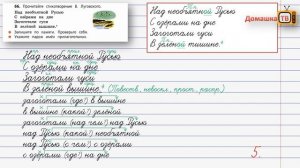 86. Прочитайте стихотворение В. Луговского.
Над необъятной Русью
С озёрами на дне
Загоготали гуси
В зелёной вышине.
Запишите по памяти. Проверьте себя.
Укажите падежи имён прилагательных.
Над необъятной Русью
С озёрами на дне
Загоготали гуси
В зелёной вышине."
Домашка
ТВ
Над необъятной Русью
С озёрами на дне
Загоготали гуси
В зелёной вышине. (Повеств., невоскл., прост., распр.)
загоготали (где?) в вышине
в вышине (какой?) зелёной
загоготали (над чем?) над Русью
над Русью (какой?) необъятной
над Русью (с чем?) с озёрами
с озёрами (где?) на дне
5.